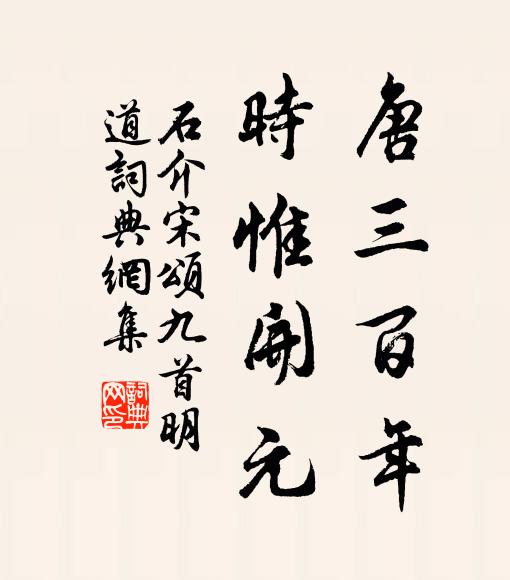 唐三百年
時惟開元
石介宋頌九首明
道詞典網集
詞典
网印